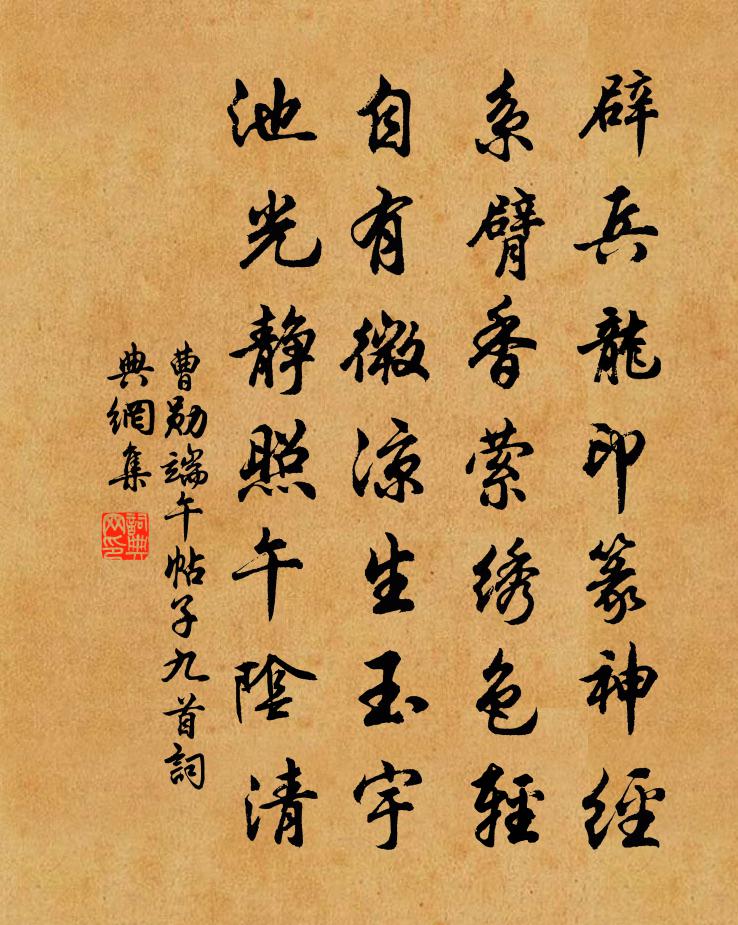 辟兵龍印篆神經
系臂香萦绣色輕
自有微涼生玉宇
池光静照午陰清
曹勛端午帖子九首詞
典網集
詞典
网印